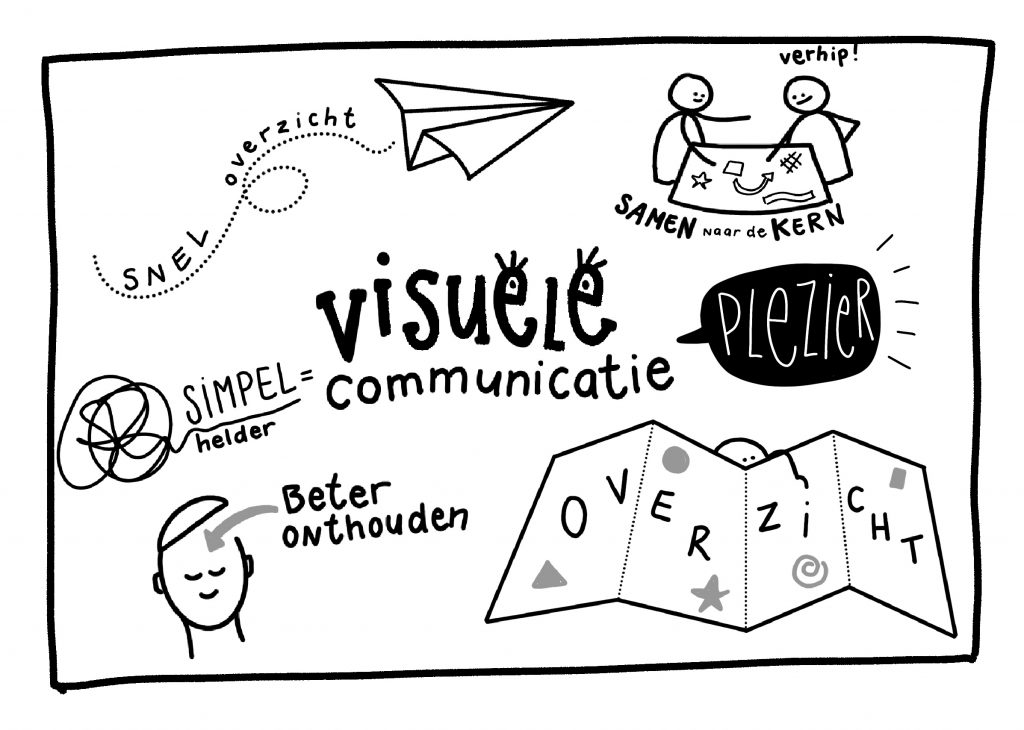 verhip!
SNEL overzicht
SAMEN naar de KERN
visuele
communicatie
PLEZIER
SIMPEL =
helder
Beter
onthouden
OVERZICHT